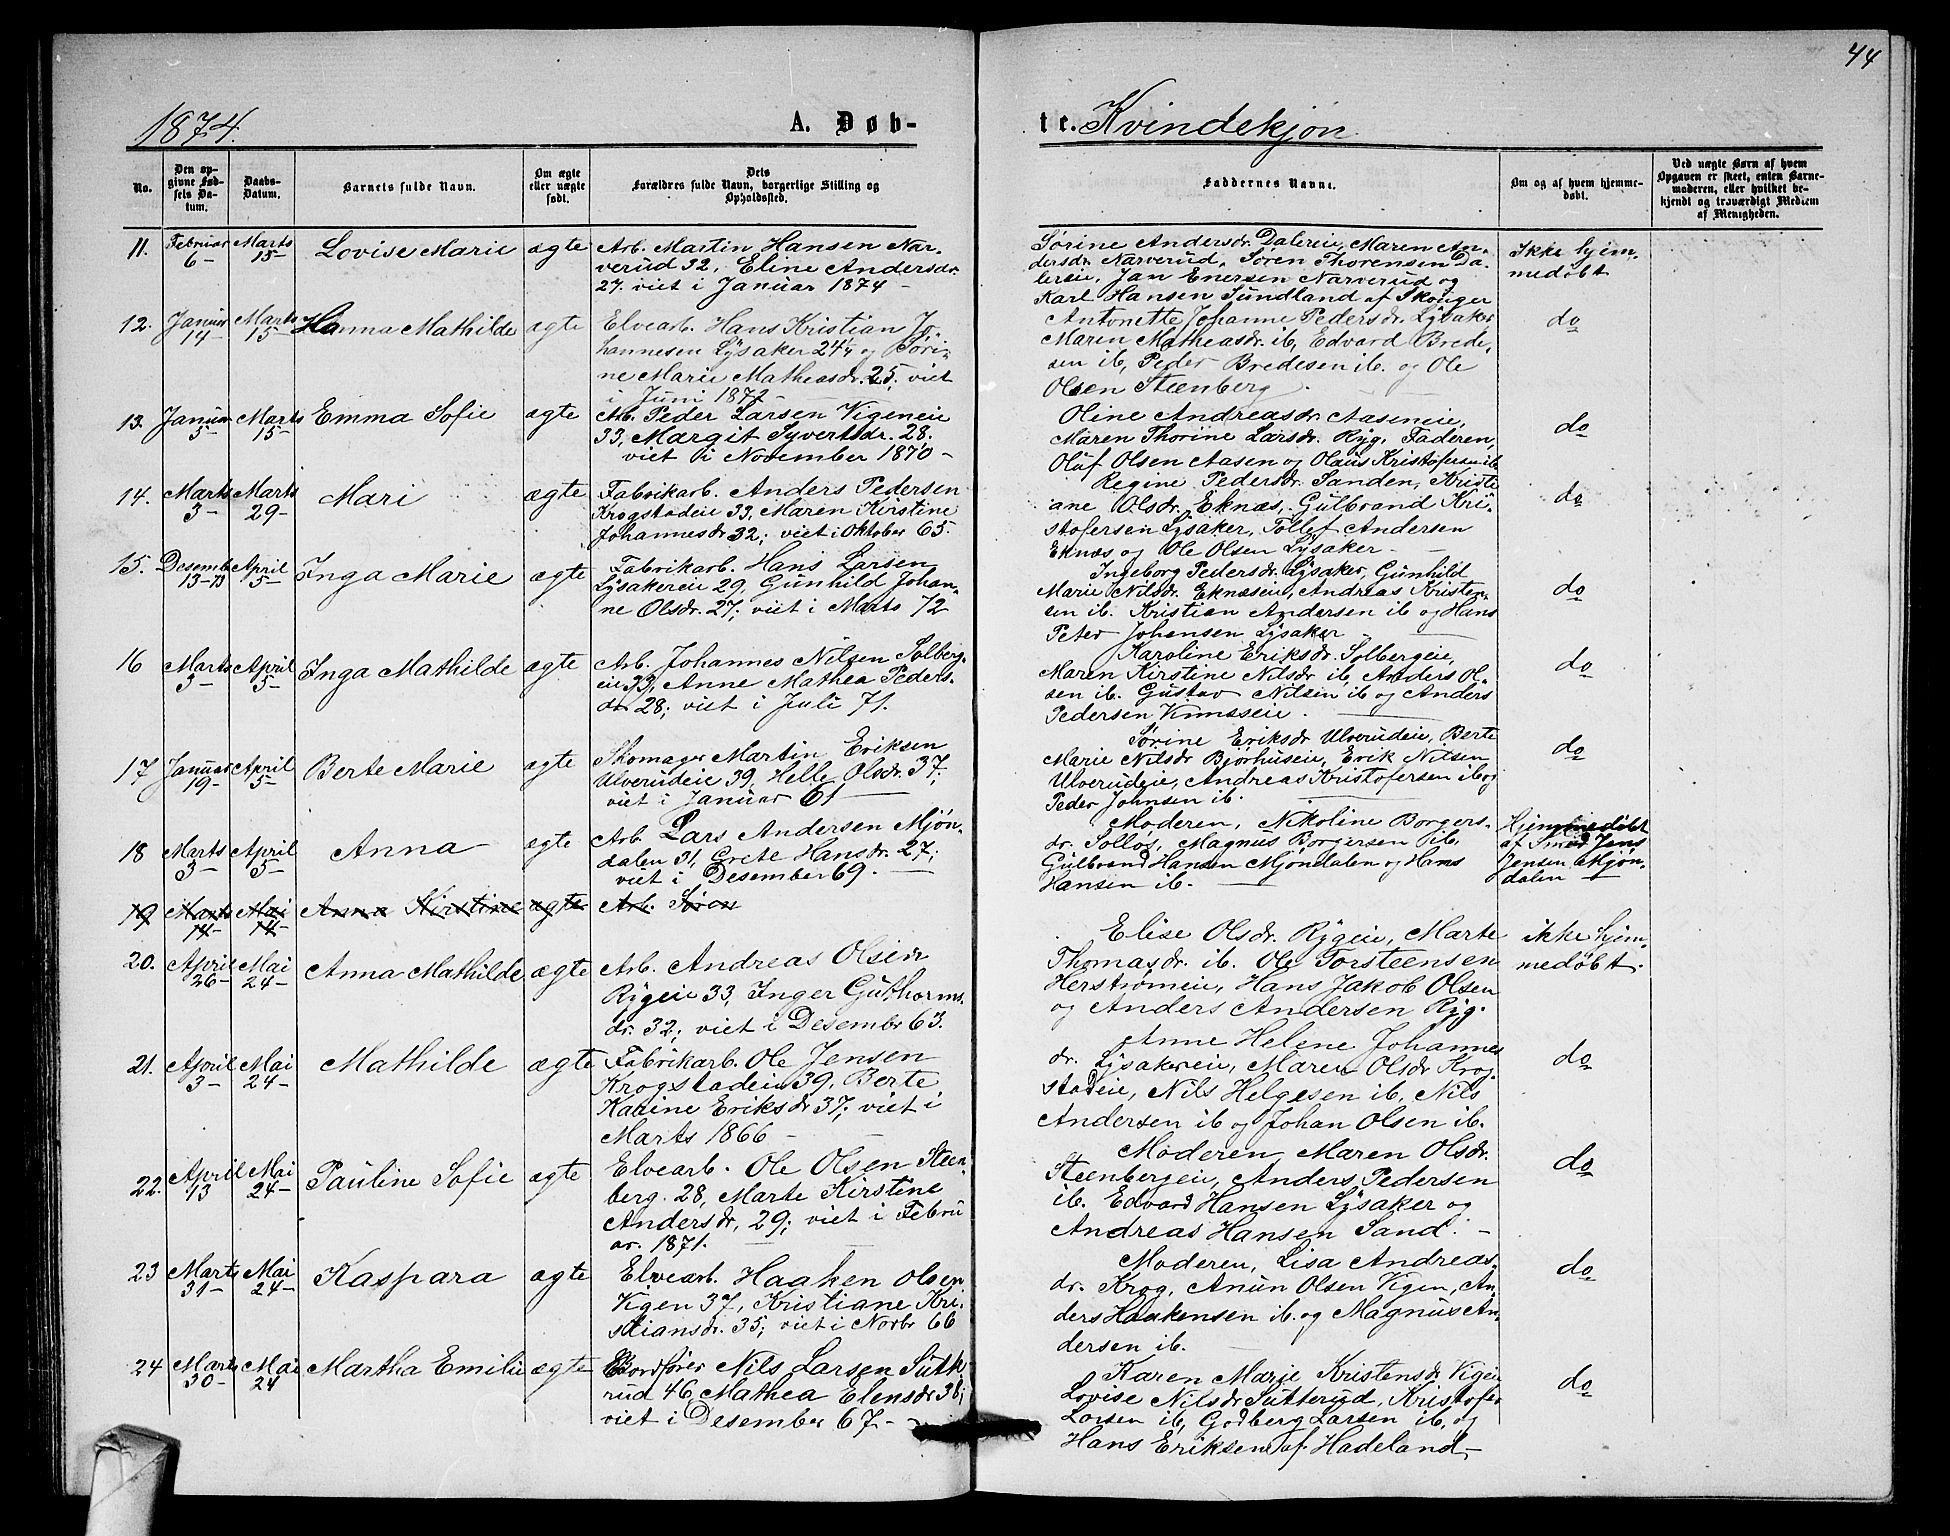 44
1874.
A. Døb-
te. Kvindekjøn
No.
Den op-
givne Fød-
sels Da-
tum.
Daabs-
Datum.
Barnets fulde Navn.
Om ægte
eller uægte
født.
Dets
Forældres fulde Navn, borgerlige Stilling og
Opholdssted.
Faddernes Navne.
Om og af hvem hjemme-
døbt.
Ved uægte Børn af hvem
Opgaven er skeet, enten Barne-
moderen, eller hvilket be-
kjendt og troværdigt Medlem
af Menigheden.
11. Februar 6- Marts 15- Lovise Marie ægte
Arb. Martin Hansen Nar-
verud 32, Eline Andersdr.
27. viet i Januar 1874-
Sørine Andersdr. Dalereie, Maren An-
dersdr. Narverud, Søren Thorensen Da-
lereie, Jan Enersen Narverud og
Karl Hansen Sundland af Skouger
Ikke hjem-
medøbt
12. Januar 14- Marts 15- Hanna Mathilde ægte
Elvearb. Hans Kristian Jo-
hannesen Lysaker 24½ og Søri-
ne Marie Matheasdr. 25, viet
i Juni 1872-
Antonette Johanne Pedersdr. Lysaker,
Maren Matheasdr. ib, Edvard Brede-
sen ib, Peder Bredesen ib. og Ole
Olsen Steenberg.
do
13. Januar 5- Marts 15- Emma Sofie ægte
Arb. Peder Larsen Vigeneie
33, Margit Syvertsdr. 28.
viet i November 1870-
Oline Andreasdr. Aaseneie,
Maren Thorine Larsdr. Ryg, Faderen,
Oluf Olsen Aasen og Olaus Kristofersen ib
do
14. Marts 3- Marts 29- Mari ægte
Fabrikarb. Anders Pedersen
Krogstadeie 33, Maren Kirstine
Johannesdr 32; viet i Oktober 65.
Regine Pedersdr. Sanden, Kristi
ane Olsdr. Eknæs, Gulbrand Kri-
stofersen Lysaker, Tollef Andersen
Eknæs og Ole Olsen Lysaker.
do
15. Desemb 13-73 April 5- Inga Marie ægte
Fabrikarb. Hans Larsen
Lysakereie 29, Gunhild Johan-
ne Olsdr. 27; viet i Marts 72
Ingeborg Pedersdr. Lysaker, Gunhild
Marie Nilsdr. Eknæseie, Andreas Kristen-
sen ib. Kristian Andersen ib og Hans
Peter Johansen Lysaker
do
16 Marts 3- April 5- Inga Mathilde ægte
Arb. Johannes Nilsen Solberg-
eie 33, Anne Mathea Peders-
dr 28; viet i Juli 71.
Karoline Eriksdr. Solbergeie,
Maren Kirstine Nilsdr ib, Anders Ol-
sen ib. Gustav Nilsen ib og Anders
Pedersen
do
17 Januar 19- April 5- Berte Marie ægte
Skomager Martin Eriksen
Ulverudeie 39, Helle Olsdr. 37;
viet i Januar 61
Sørine Eriksdr Ulverudeie, Berte
Marie Nilsdr Bjørhuseie, Erik Nilsen
Ulverudeie, Andreas Kristofersen ib og
Peder Johnsen ib.
do
18 Marts 3- April 5- Anna ægte
Arb. Lars Andersen Mjøn-
dalen 31, Grete Hansdr. 27;
viet i Desember 69.
Moderen, Nikoline Borgers-
dr. Solløs, Magnus Borgersen ib,
Gulbrand Hansen Mjøndalen og Hans
Hansen ib.
Hjemmedøbt
af Smed Jens
Jensen Mjøn-
dalen
19 Marts 14- Mai 14- Anna Kirstine ægte Arb. Søren
20. April 26- Mai 24- Anna Mathilde ægte
Arb. Andreas Olsen
Rygeie 33, Inger Guthorms-
dr. 32; viet i Desember 63.
Elise Olsdr. Rygeie, Marte
Thomasdr. ib. Ole Torsteensen
Herstrømeie, Hans Jakob Olsen
og Anders Andersen Ryg.
ikke hjem-
medøbt.
21. April 3- Mai 24- Mathilde ægte
Fabrikarb. Ole Jensen
Krogstadeie 39, Berte
Karine Eriksdr 37; viet i
Marts 1866-
Anne Helene Johannes
dr. Lysakereie, Maren Olsdr Krog-
stadeie, Nils Helgesen ib, Nils
Andersen ib og Johan Olsen ib.
do
22. April 13 Mai 24- Pauline Sofie ægte
Elvearb. Ole Olsen Steen-
berg. 28, Marte Kirstine
Andersdr, 29; viet i Febru
ar. 1871.
Moderen, Maren Olsdr.
Steenbergeie, Anders Pedersen
ib. Edvard Hansen Lysaker og
Andreas Hansen Sand.-
do
23 Marts 31- Mai 24- Kaspara ægte
Elvearb. Haaken Olsen
Vigen 37, Kristiane Kri-
stiansdr. 35; viet i Novbr 66
Moderen, Lisa Andreas-
dr. Krog, Anun Olsen Vigen, An-
ders Haakensen ib. og Magnus An-
dersen ib.
do
24 Marts 30- Mai 24 Martha Emilie ægte
Bordfører Nils Larsen Sutte
rud 46, Mathea Elensdr 38;
viet i Desember 67-
Karen Marie Kristensdr Vigen
Lovise Nilsdr Sutterud, Kristofer
Larsen ib, Godberg Larsen ib, og
Hans Eriksen af Hadeland-
do